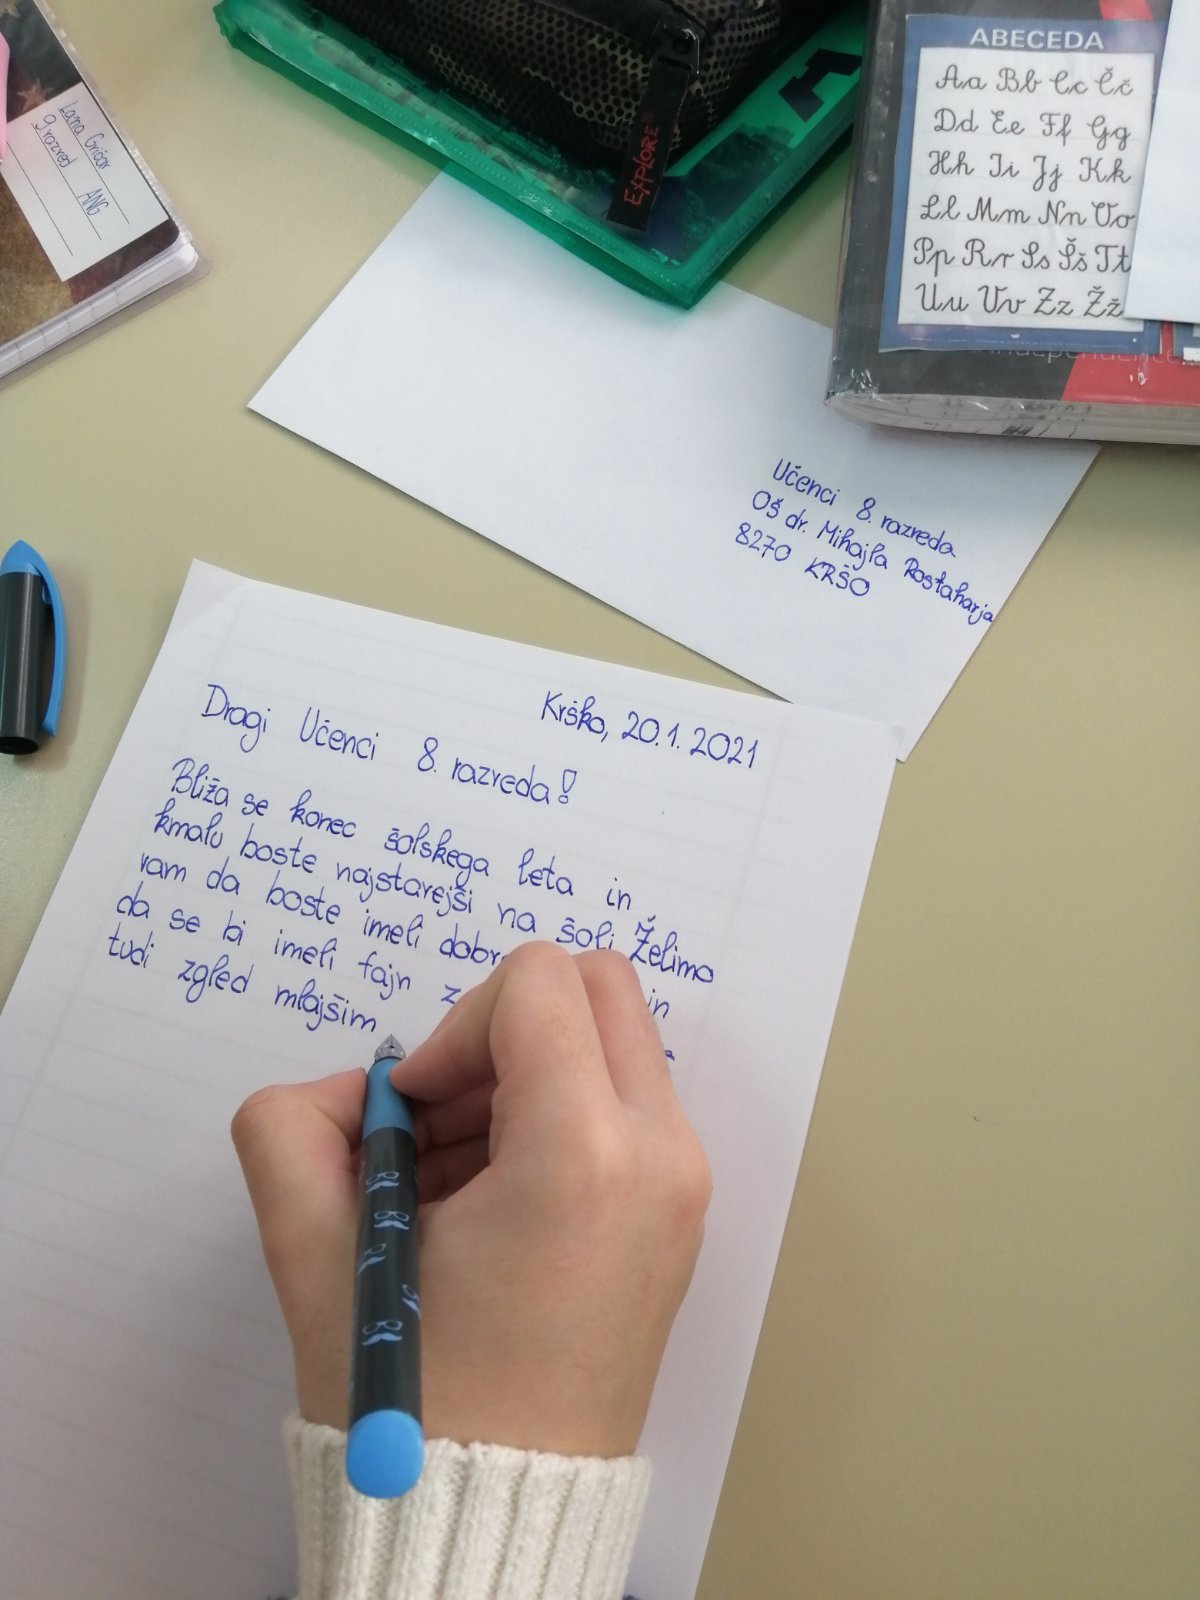 Lana Gričar
9. razred ANG
EXPLORE
ABECEDA
Aa Bb Cc Čč
Dd Ee Ff Gg
Hh Ii Jj Kk
Ll Mm Nn Oo
Pp Rr Ss Šš Tt
Uu Vv Zz Žž
independence
Učenci 8. razreda
OŠ dr. Mihajla Rostaharja
8270 KRŠO
Krško, 20.1.2021
Dragi Učenci 8. razreda!
Bliža se konec šolskega leta in
kmalu boste najstarejši na šoli. Želimo
vam da boste imeli
da se bi imeli fajn in
tudi zgled mlajšim